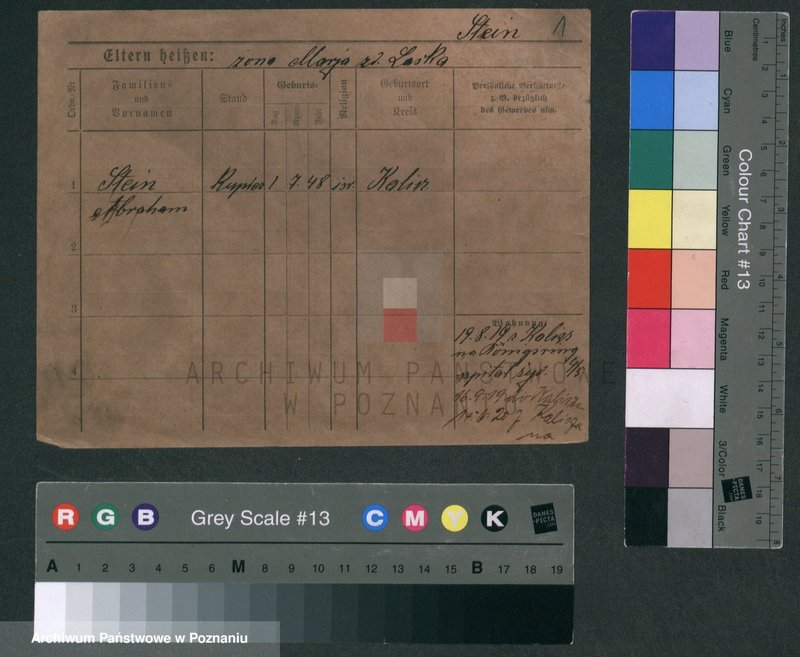 Stein 1
Eltern heißen: żona Marja zd. Laska
Ordn.-Nr.
Familien- und Vornamen
Stand
Geburts-
Tag
Monat
Jahr
Religion
Geburtsort und Kreis
Persönliche Verhältnisse z. B. bezüglich des Gewerbes usw.
1 Stein Kupiec 1 7. 48 izr. Kalisz
Abraham
2
3
Wohnung:
19.8.19 z Kalisz
na Königsring
4 szpital żyd.
16.9.19 do Kalisza
14.6.20 z Kalisza
na
ARCHIWUM PAŃSTWOWE
W POZNANIU
Colour Chart #13
Blue
Cyan
Green
Yellow
Red
Magenta
White
3/Color
Black
Inches
Centimetres
1 2 3 4 5 6 7 8
1 2 3 4 5 6 7 8 9 10 11 12 13 14 15 16 17 18 19
DANES-PICTA.COM
R G B Grey Scale #13 C M Y K
DANES-PICTA.COM
A 1 2 3 4 5 6 M 8 9 10 11 12 13 14 15 B 17 18 19
Archiwum Państwowe w Poznaniu